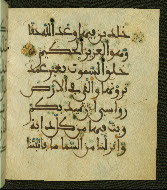 خلدين فيها وعد الله حقا
وهو العزيز الحكيم
خلق السموت بغير عمد
ترونها وألقى في الأرض
رواسي أن تميد بكم
وبث فيها من كل دابة
وأنزلنا من السماء ماء فأنبتنا